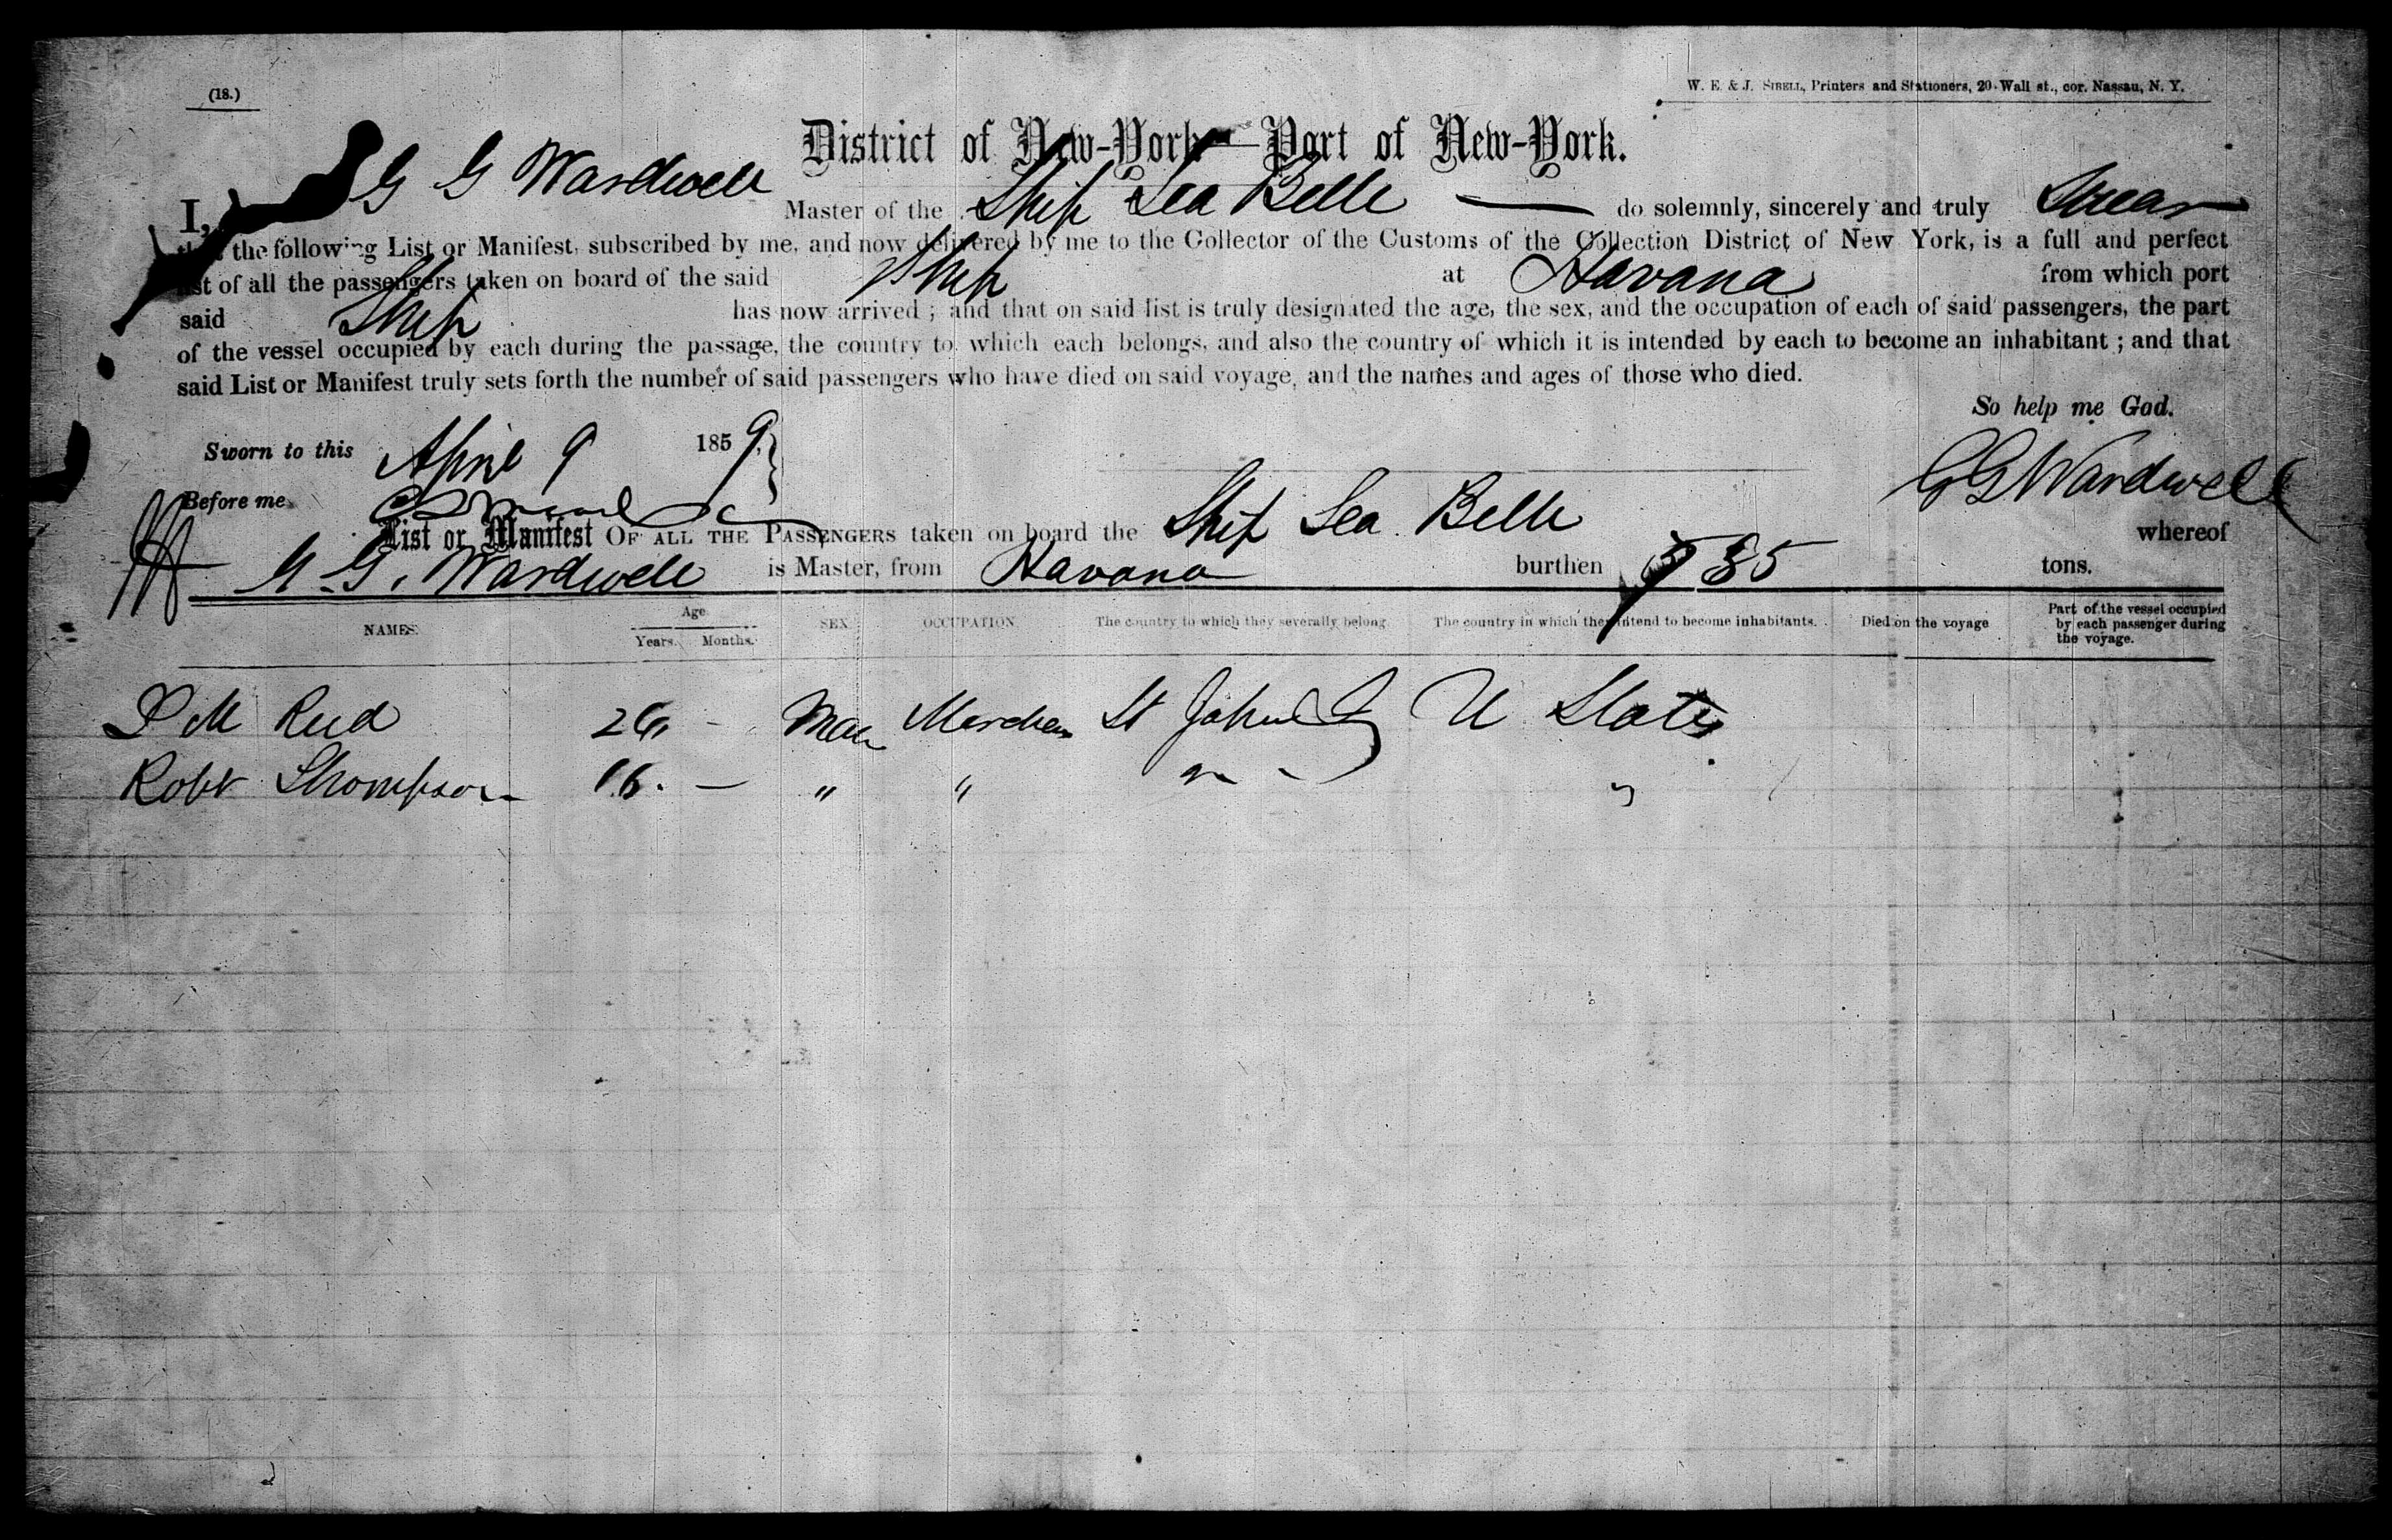 (18.)
W. E. & J. SIBELL, Printers and Stationers, 20 Wall st., cor. Nassau, N. Y.
District of New-York—Port of New-York.
I, G G Wardwell Master of the Ship Sea Belle do solemnly, sincerely and truly Swear
that the following List or Manifest, subscribed by me, and now delivered by me to the Collector of the Customs of the Collection District of New York, is a full and perfect
list of all the passengers taken on board of the said Ship at Havana from which port
said Ship has now arrived ; and that on said list is truly designated the age, the sex, and the occupation of each of said passengers, the part
of the vessel occupied by each during the passage, the country to which each belongs, and also the country of which it is intended by each to become an inhabitant ; and that
said List or Manifest truly sets forth the number of said passengers who have died on said voyage, and the names and ages of those who died.
So help me God.
Sworn to this April 9 1859
G G Wardwell
Before me
List or Manifest OF ALL THE PASSENGERS taken on board the Ship Sea Belle whereof
G. G. Wardwell is Master, from Havana burthen 85 tons.
NAMES. Age Years. Months. SEX OCCUPATION The country to which they severally belong The country in which they intend to become inhabitants. Died on the voyage Part of the vessel occupied by each passenger during the voyage.
M Reid 26 - Man Merchan St John U States
Robt Thompson 16. — " " " "